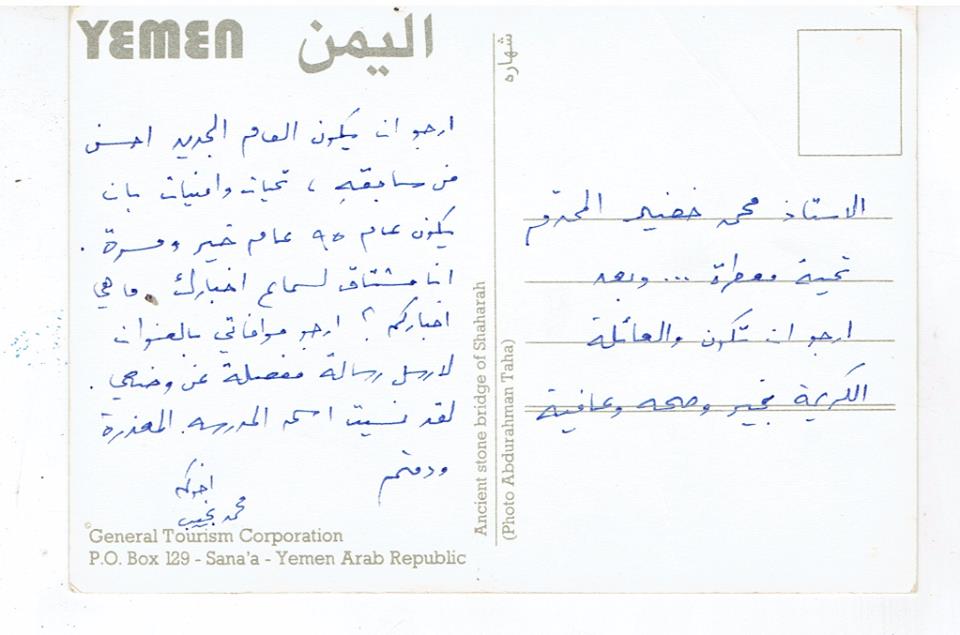 YEMEN اليمن
الاستاذ محمد خضير المحترم
تحية معطرة ... وبعد
ارجو ان تكون والعائلة
الكريمة بخير وصحه وعافية
ارجو ان يكون العام الجديد احسن
من سابقه ، تحيات وامنيات بان
يكون عام ٩٥ عام خير ومسرة .
انا مشتاق لسماع اخبارك . ما هي
اخباركم ؟ ارجو موافاتي بالعنوان
لارسل رسالة مفصلة عن وضعي .
لقد نسيت اسم المدرسه . المعذرة
ودمتم
اخوكم
محمد نجيب
شهاره
Ancient stone bridge of Shaharah
(Photo Abdurahman Taha)
© General Tourism Corporation
P.O. Box 129 - Sana'a - Yemen Arab Republic